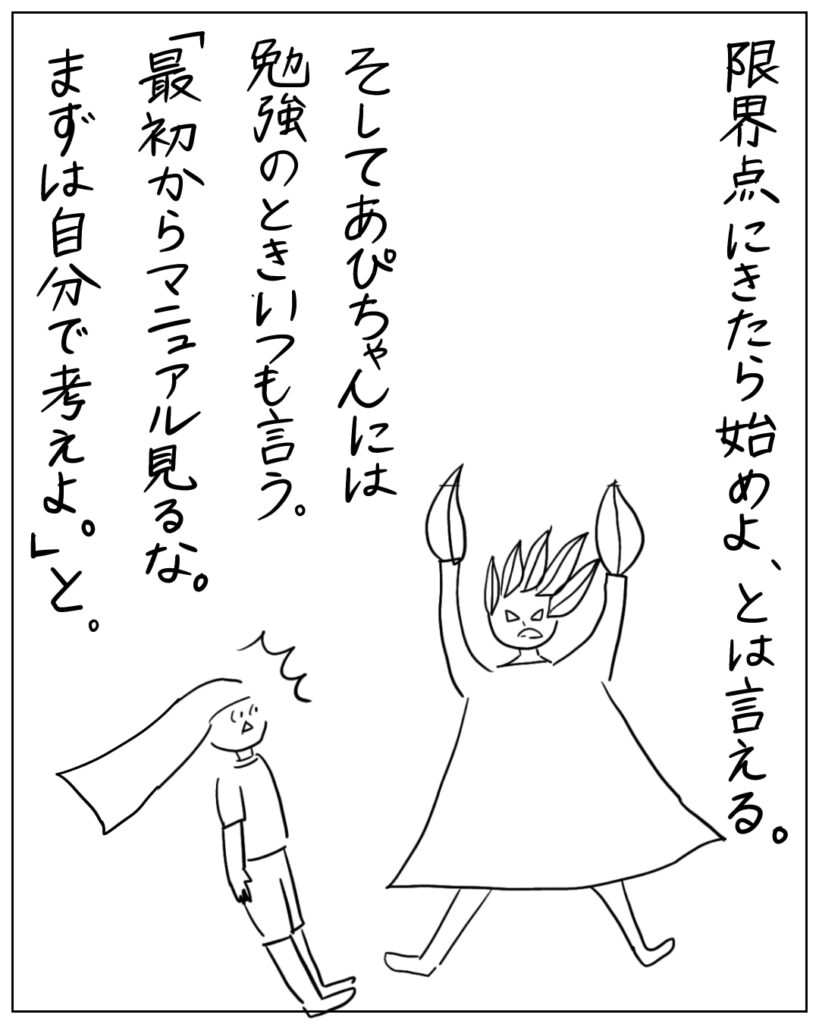 限界点にきたら始めよ、とは言える。
そしてあぴちゃんには
勉強のときいつも言う。
「最初からマニュアル見るな。
まずは自分で考えよ。」と。